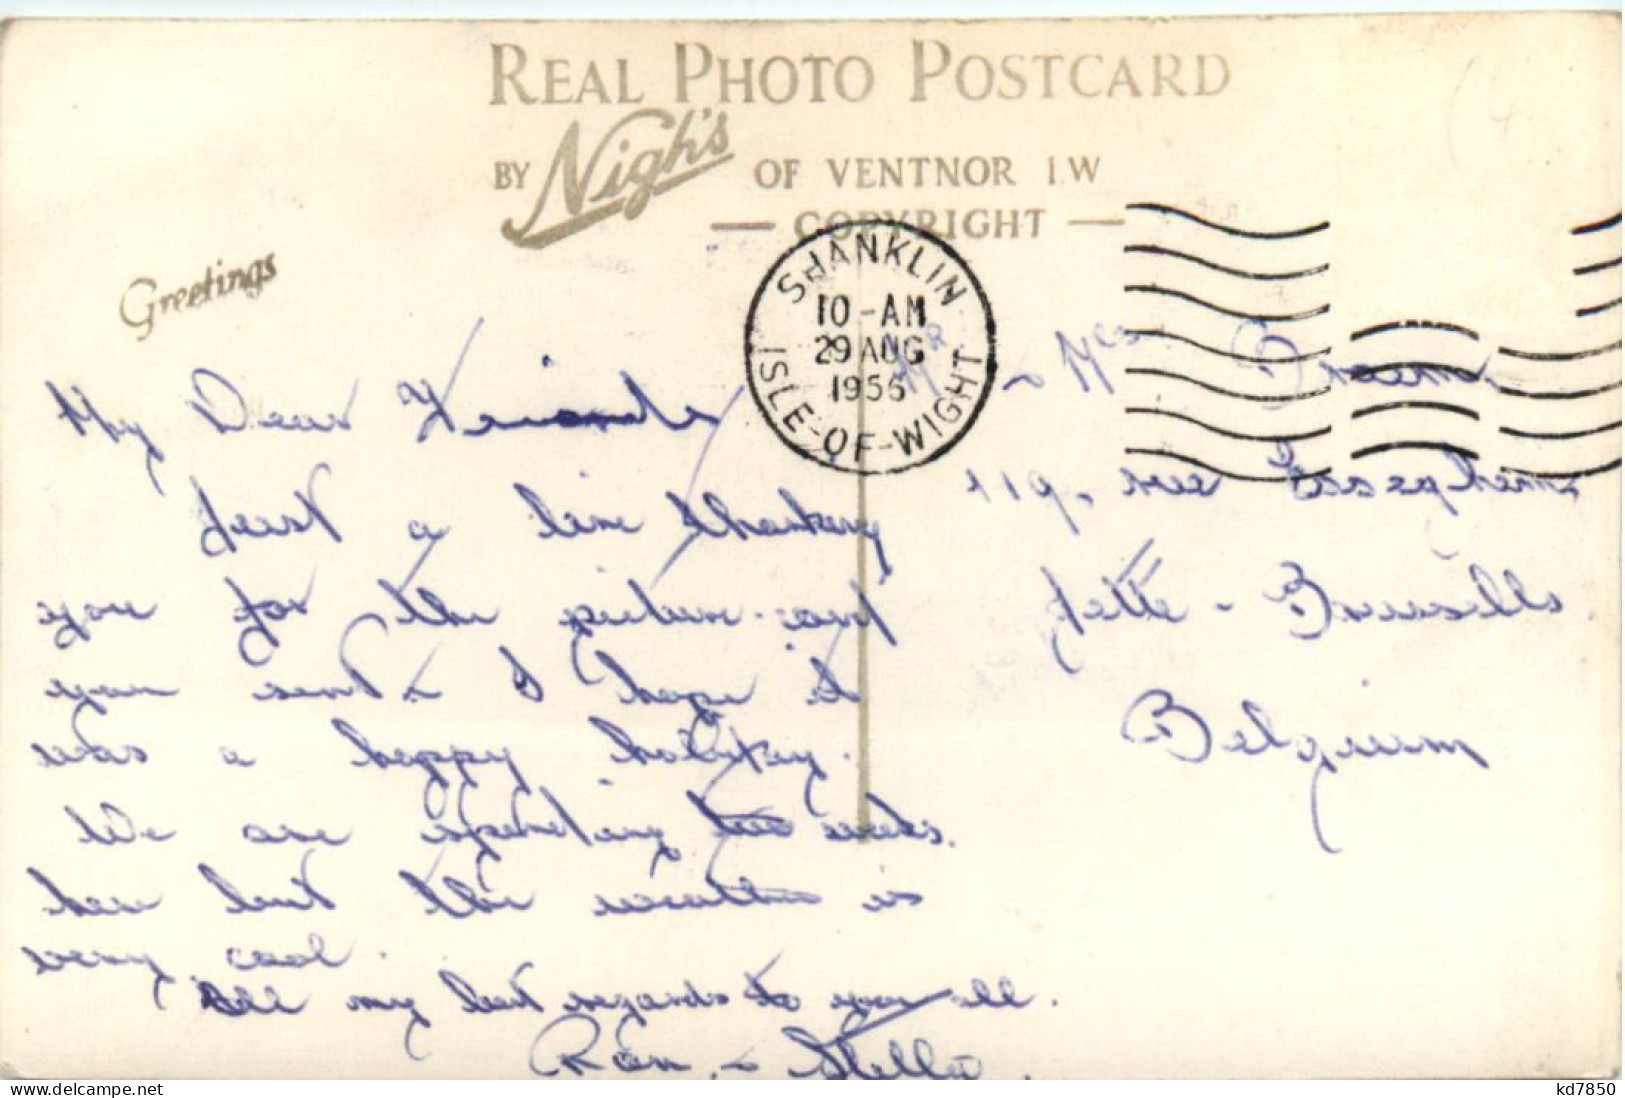 REAL PHOTO POSTCARD
BY Nigh's OF VENTNOR I.W
— COPYRIGHT —
Greetings
SHANKLIN
10-AM
29 AUG
1956
ISLE-OF-WIGHT
My Dear Friends
Just a line thanking
you for the picture-card
you sent. I hope it
was a happy holiday.
We are spending two weeks
here but the weather is
very cool.
All my best regards to you all.
Ron. ~ Stella.
Mr ~ Mrs
119, rue Esseghem
Jette - Brussells
Belgium
www.delcampe.net
kd7850